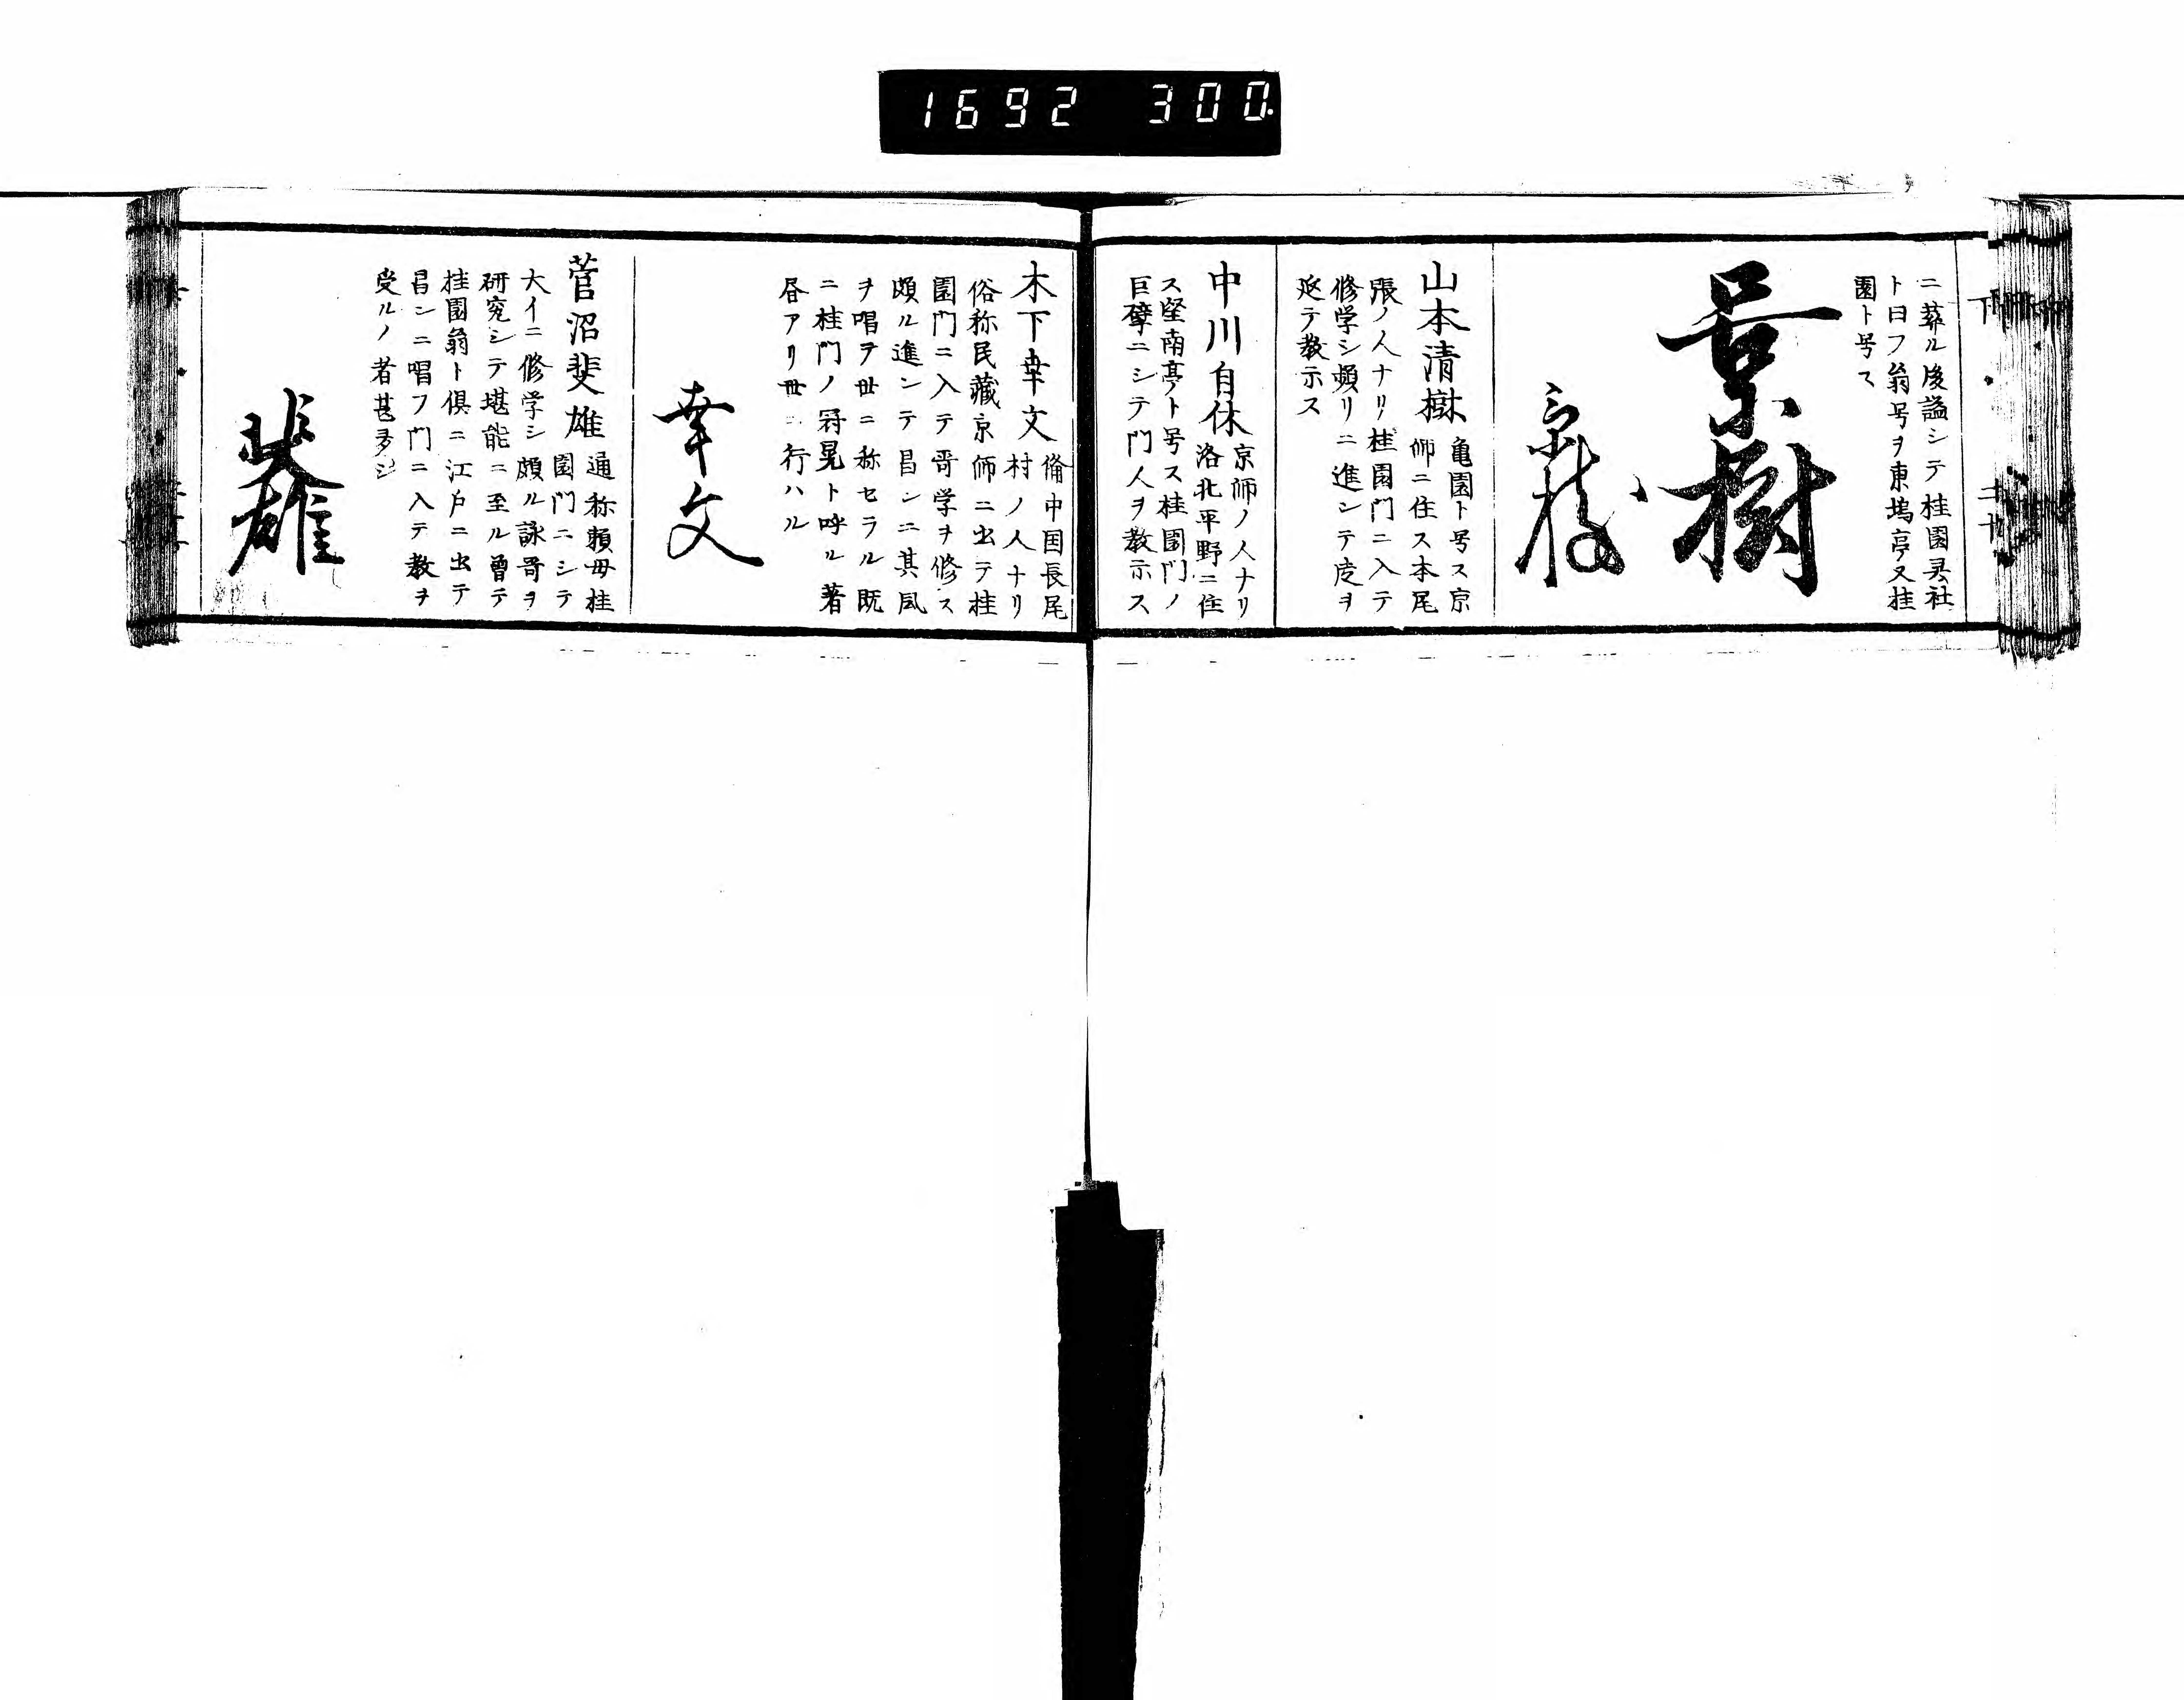 1692 300.
下
二十
ニ葬ル後謚シテ桂園灵社
ト曰フ翁号ヲ東塢亭又桂
園ト号ス
景樹
景樹
山本清樹
亀園ト号ス京
師ニ住ス本尾
張ノ人ナリ桂園門ニ入テ
修学シ頻リニ進ンテ度ヲ
延テ教示ス
中川自休
京师ノ人ナリ
洛北平野ニ住
ス堅南亭ト号ス桂園門ノ
巨擘ニシテ門人ヲ教示ス
木下幸文
偹中国長尾
村ノ人ナリ
俗称民藏京师ニ出テ桂
園門ニ入テ哥学ヲ修ス
頗ル進ンテ昌ンニ其風
ヲ唱ヲ世ニ称セラル既
ニ桂門ノ冠冕ト呼ル著
昏アリ世ニ行ハル
幸文
菅沼斐雄
通称頼母桂
園門ニシテ
大イニ修学シ頗ル詠哥ヲ
研究シテ堪能ニ至ル曽テ
桂園翁ト倶ニ江户ニ出テ
昌ンニ唱フ門ニ入テ教ヲ
受ルノ者甚多シ
斐雄